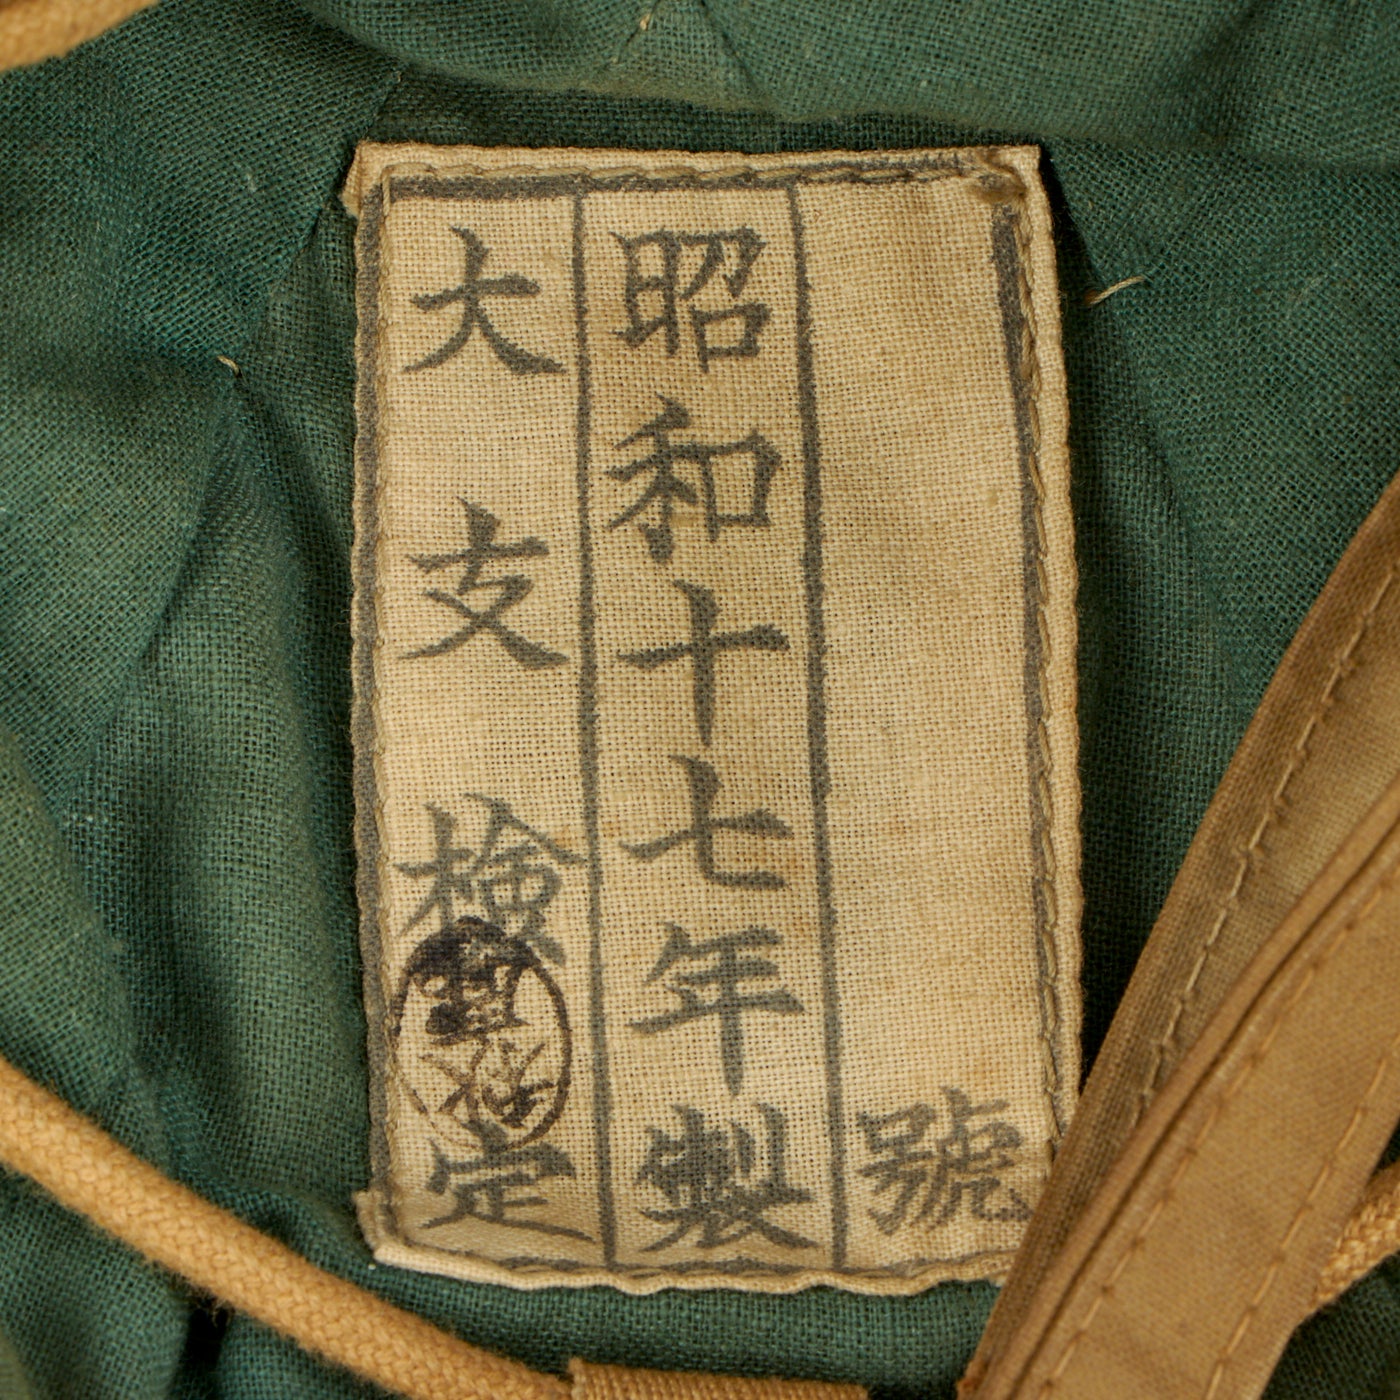 號
昭和十七年製
大支検定